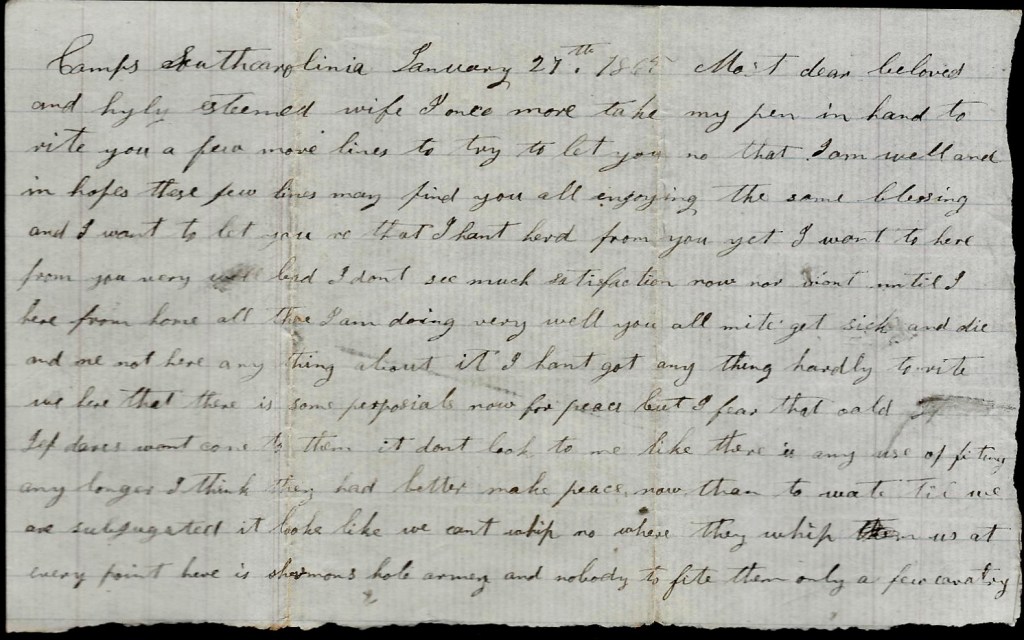 Camps Southcarolinia January 27th. 1865 Most dear beloved
and hyly esteemed wife I once more take my pen in hand to
rite you a few more lines to try to let you no that I am well and
in hopes these few lines may find you all enjoying the same blessing
and I want to let you no that I hant herd from you yet I want to here
from you very bad I dont see much satisfaction now nor wont until I
here from home all tho I am doing very well you all mite get sick and die
and me not here any thing about it I hant got any thing hardly to rite
we here that there is some perposials now for peace but I fear that oald
Jef daves wont cone to them it dont look to me like there is any use of fiting
any longer I think they had better make peace now than to wate til we
are subjugated it looks like we cant whip no where they whip us at
every point here is shermons hole armey and nobody to fite them only a few cavalry